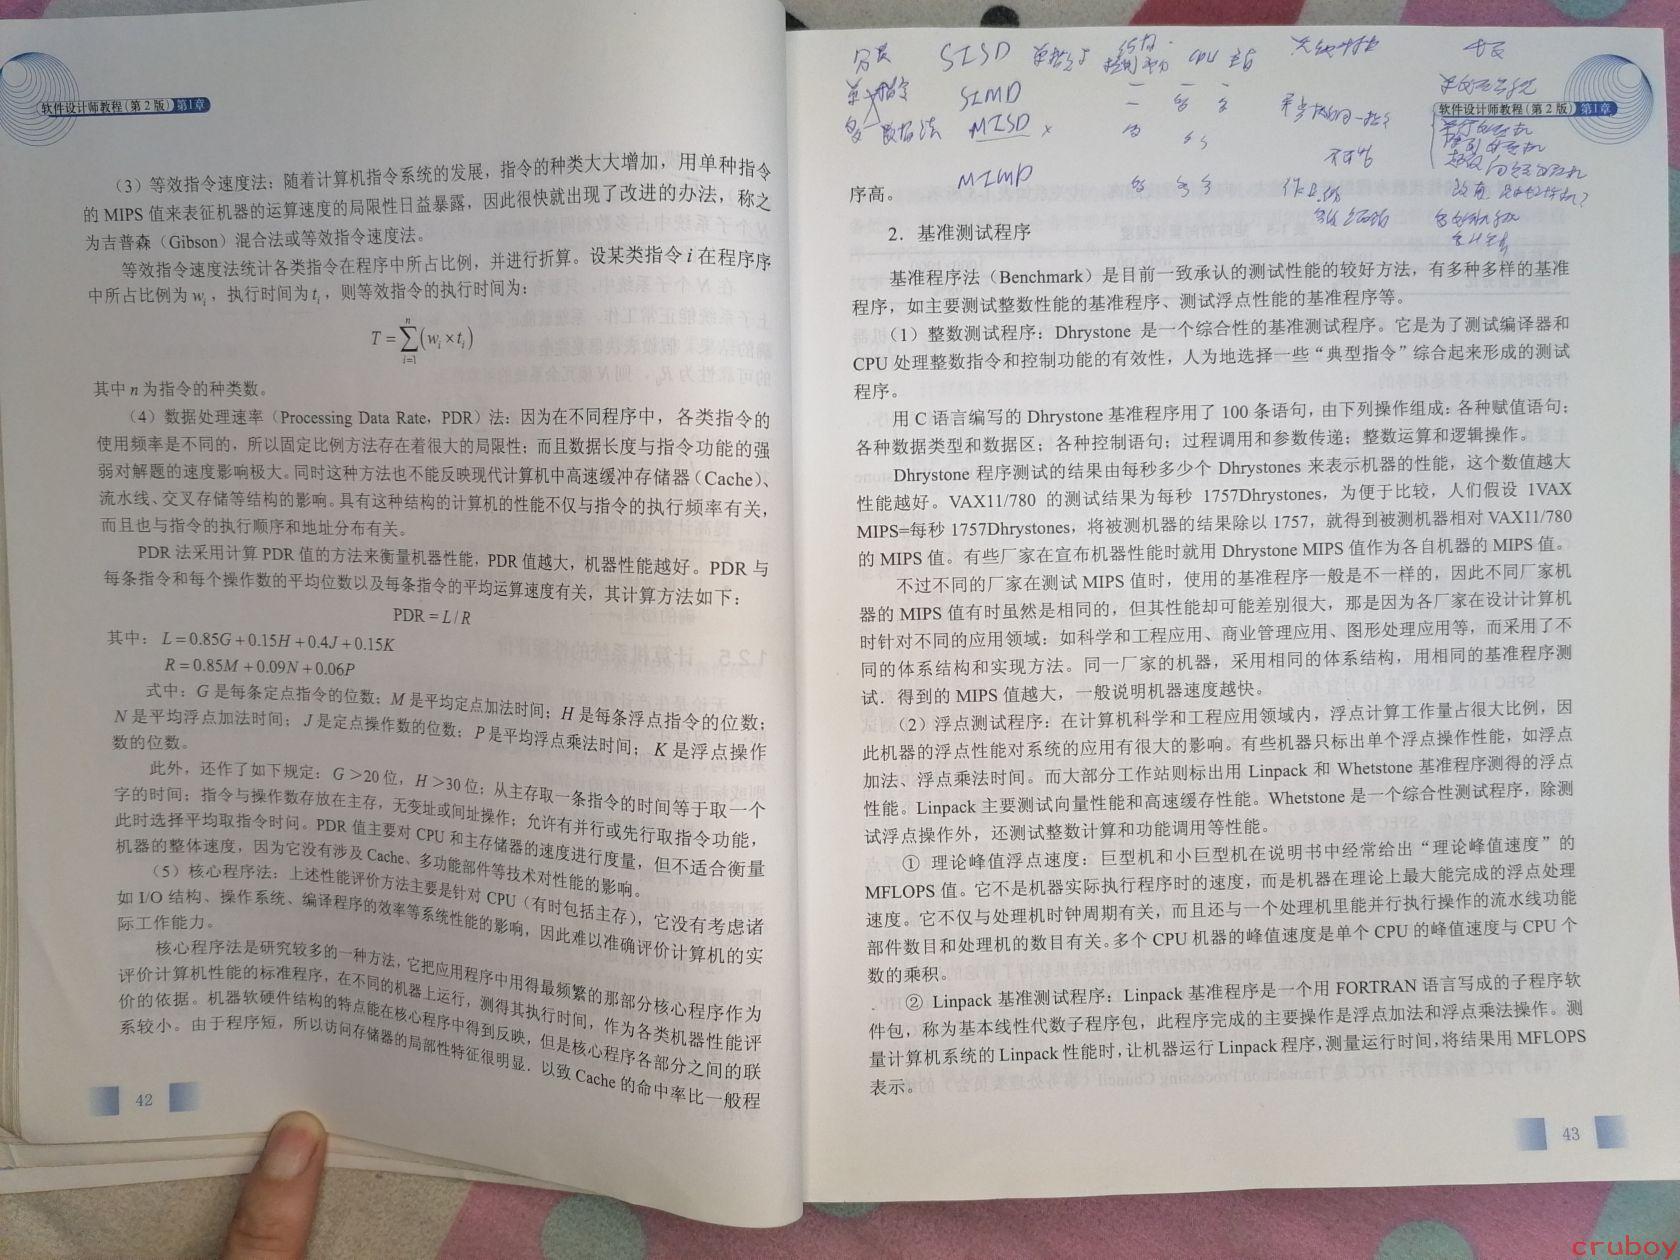 软件设计师教程(第2版) 第1章
（3）等效指令速度法：随着计算机指令系统的发展，指令的种类大大增加，用单种指令
的 MIPS 值来表征机器的运算速度的局限性日益暴露，因此很快就出现了改进的办法，称之
为吉普森（Gibson）混合法或等效指令速度法。
等效指令速度法统计各类指令在程序中所占比例，并进行折算。设某类指令 i 在程序序
中所占比例为 wᵢ，执行时间为 tᵢ，则等效指令的执行时间为：
T = ∑ⁿᵢ₌₁ (wᵢ × tᵢ)
其中 n 为指令的种类数。
（4）数据处理速率（Processing Data Rate，PDR）法：因为在不同程序中，各类指令的
使用频率是不同的，所以固定比例方法存在着很大的局限性；而且数据长度与指令功能的强
弱对解题的速度影响极大。同时这种方法也不能反映现代计算机中高速缓冲存储器（Cache）、
流水线、交叉存储等结构的影响。具有这种结构的计算机的性能不仅与指令的执行频率有关，
而且也与指令的执行顺序和地址分布有关。
PDR 法采用计算 PDR 值的方法来衡量机器性能，PDR 值越大，机器性能越好。PDR 与
每条指令和每个操作数的平均位数以及每条指令的平均运算速度有关，其计算方法如下：
PDR = L / R
其中： L = 0.85G + 0.15H + 0.4J + 0.15K
R = 0.85M + 0.09N + 0.06P
式中：G 是每条定点指令的位数；M 是平均定点加法时间；H 是每条浮点指令的位数；
N 是平均浮点加法时间；J 是定点操作数的位数；P 是平均浮点乘法时间；K 是浮点操作
数的位数。
此外，还作了如下规定：G＞20 位，H＞30 位；从主存取一条指令的时间等于取一个
字的时间；指令与操作数存放在主存，无变址或间址操作；允许有并行或先行取指令功能，
此时选择平均取指令时间。PDR 值主要对 CPU 和主存储器的速度进行度量，但不适合衡量
机器的整体速度，因为它没有涉及 Cache、多功能部件等技术对性能的影响。
（5）核心程序法：上述性能评价方法主要是针对 CPU（有时包括主存），它没有考虑诸
如 I/O 结构、操作系统、编译程序的效率等系统性能的影响，因此难以准确评价计算机的实
际工作能力。
核心程序法是研究较多的一种方法，它把应用程序中用得最频繁的那部分核心程序作为
评价计算机性能的标准程序，在不同的机器上运行，测得其执行时间，作为各类机器性能评
价的依据。机器软硬件结构的特点能在核心程序中得到反映，但是核心程序各部分之间的联
系较小。由于程序短，所以访问存储器的局部性特征很明显．以致 Cache 的命中率比一般程
42
SISD CPU
SIMD
MISD ×
MIMD
软件设计师教程(第2版) 第1章
序高。
2．基准测试程序
基准程序法（Benchmark）是目前一致承认的测试性能的较好方法，有多种多样的基准
程序，如主要测试整数性能的基准程序、测试浮点性能的基准程序等。
（1）整数测试程序：Dhrystone 是一个综合性的基准测试程序。它是为了测试编译器和
CPU 处理整数指令和控制功能的有效性，人为地选择一些“典型指令”综合起来形成的测试
程序。
用 C 语言编写的 Dhrystone 基准程序用了 100 条语句，由下列操作组成：各种赋值语句；
各种数据类型和数据区；各种控制语句；过程调用和参数传递；整数运算和逻辑操作。
Dhrystone 程序测试的结果由每秒多少个 Dhrystones 来表示机器的性能，这个数值越大
性能越好。VAX11/780 的测试结果为每秒 1757Dhrystones，为便于比较，人们假设 1VAX
MIPS=每秒 1757Dhrystones，将被测机器的结果除以 1757，就得到被测机器相对 VAX11/780
的 MIPS 值。有些厂家在宣布机器性能时就用 Dhrystone MIPS 值作为各自机器的 MIPS 值。
不过不同的厂家在测试 MIPS 值时，使用的基准程序一般是不一样的，因此不同厂家机
器的 MIPS 值有时虽然是相同的，但其性能却可能差别很大，那是因为各厂家在设计计算机
时针对不同的应用领域：如科学和工程应用、商业管理应用、图形处理应用等，而采用了不
同的体系结构和实现方法。同一厂家的机器，采用相同的体系结构，用相同的基准程序测
试．得到的 MIPS 值越大，一般说明机器速度越快。
（2）浮点测试程序：在计算机科学和工程应用领域内，浮点计算工作量占很大比例，因
此机器的浮点性能对系统的应用有很大的影响。有些机器只标出单个浮点操作性能，如浮点
加法、浮点乘法时间。而大部分工作站则标出用 Linpack 和 Whetstone 基准程序测得的浮点
性能。Linpack 主要测试向量性能和高速缓存性能。Whetstone 是一个综合性测试程序，除测
试浮点操作外，还测试整数计算和功能调用等性能。
① 理论峰值浮点速度：巨型机和小巨型机在说明书中经常给出“理论峰值速度”的
MFLOPS 值。它不是机器实际执行程序时的速度，而是机器在理论上最大能完成的浮点处理
速度。它不仅与处理机时钟周期有关，而且还与一个处理机里能并行执行操作的流水线功能
部件数目和处理机的数目有关。多个 CPU 机器的峰值速度是单个 CPU 的峰值速度与 CPU 个
数的乘积。
② Linpack 基准测试程序：Linpack 基准程序是一个用 FORTRAN 语言写成的子程序软
件包，称为基本线性代数子程序包，此程序完成的主要操作是浮点加法和浮点乘法操作。测
量计算机系统的 Linpack 性能时，让机器运行 Linpack 程序，测量运行时间，将结果用 MFLOPS
表示。
43
cruboy